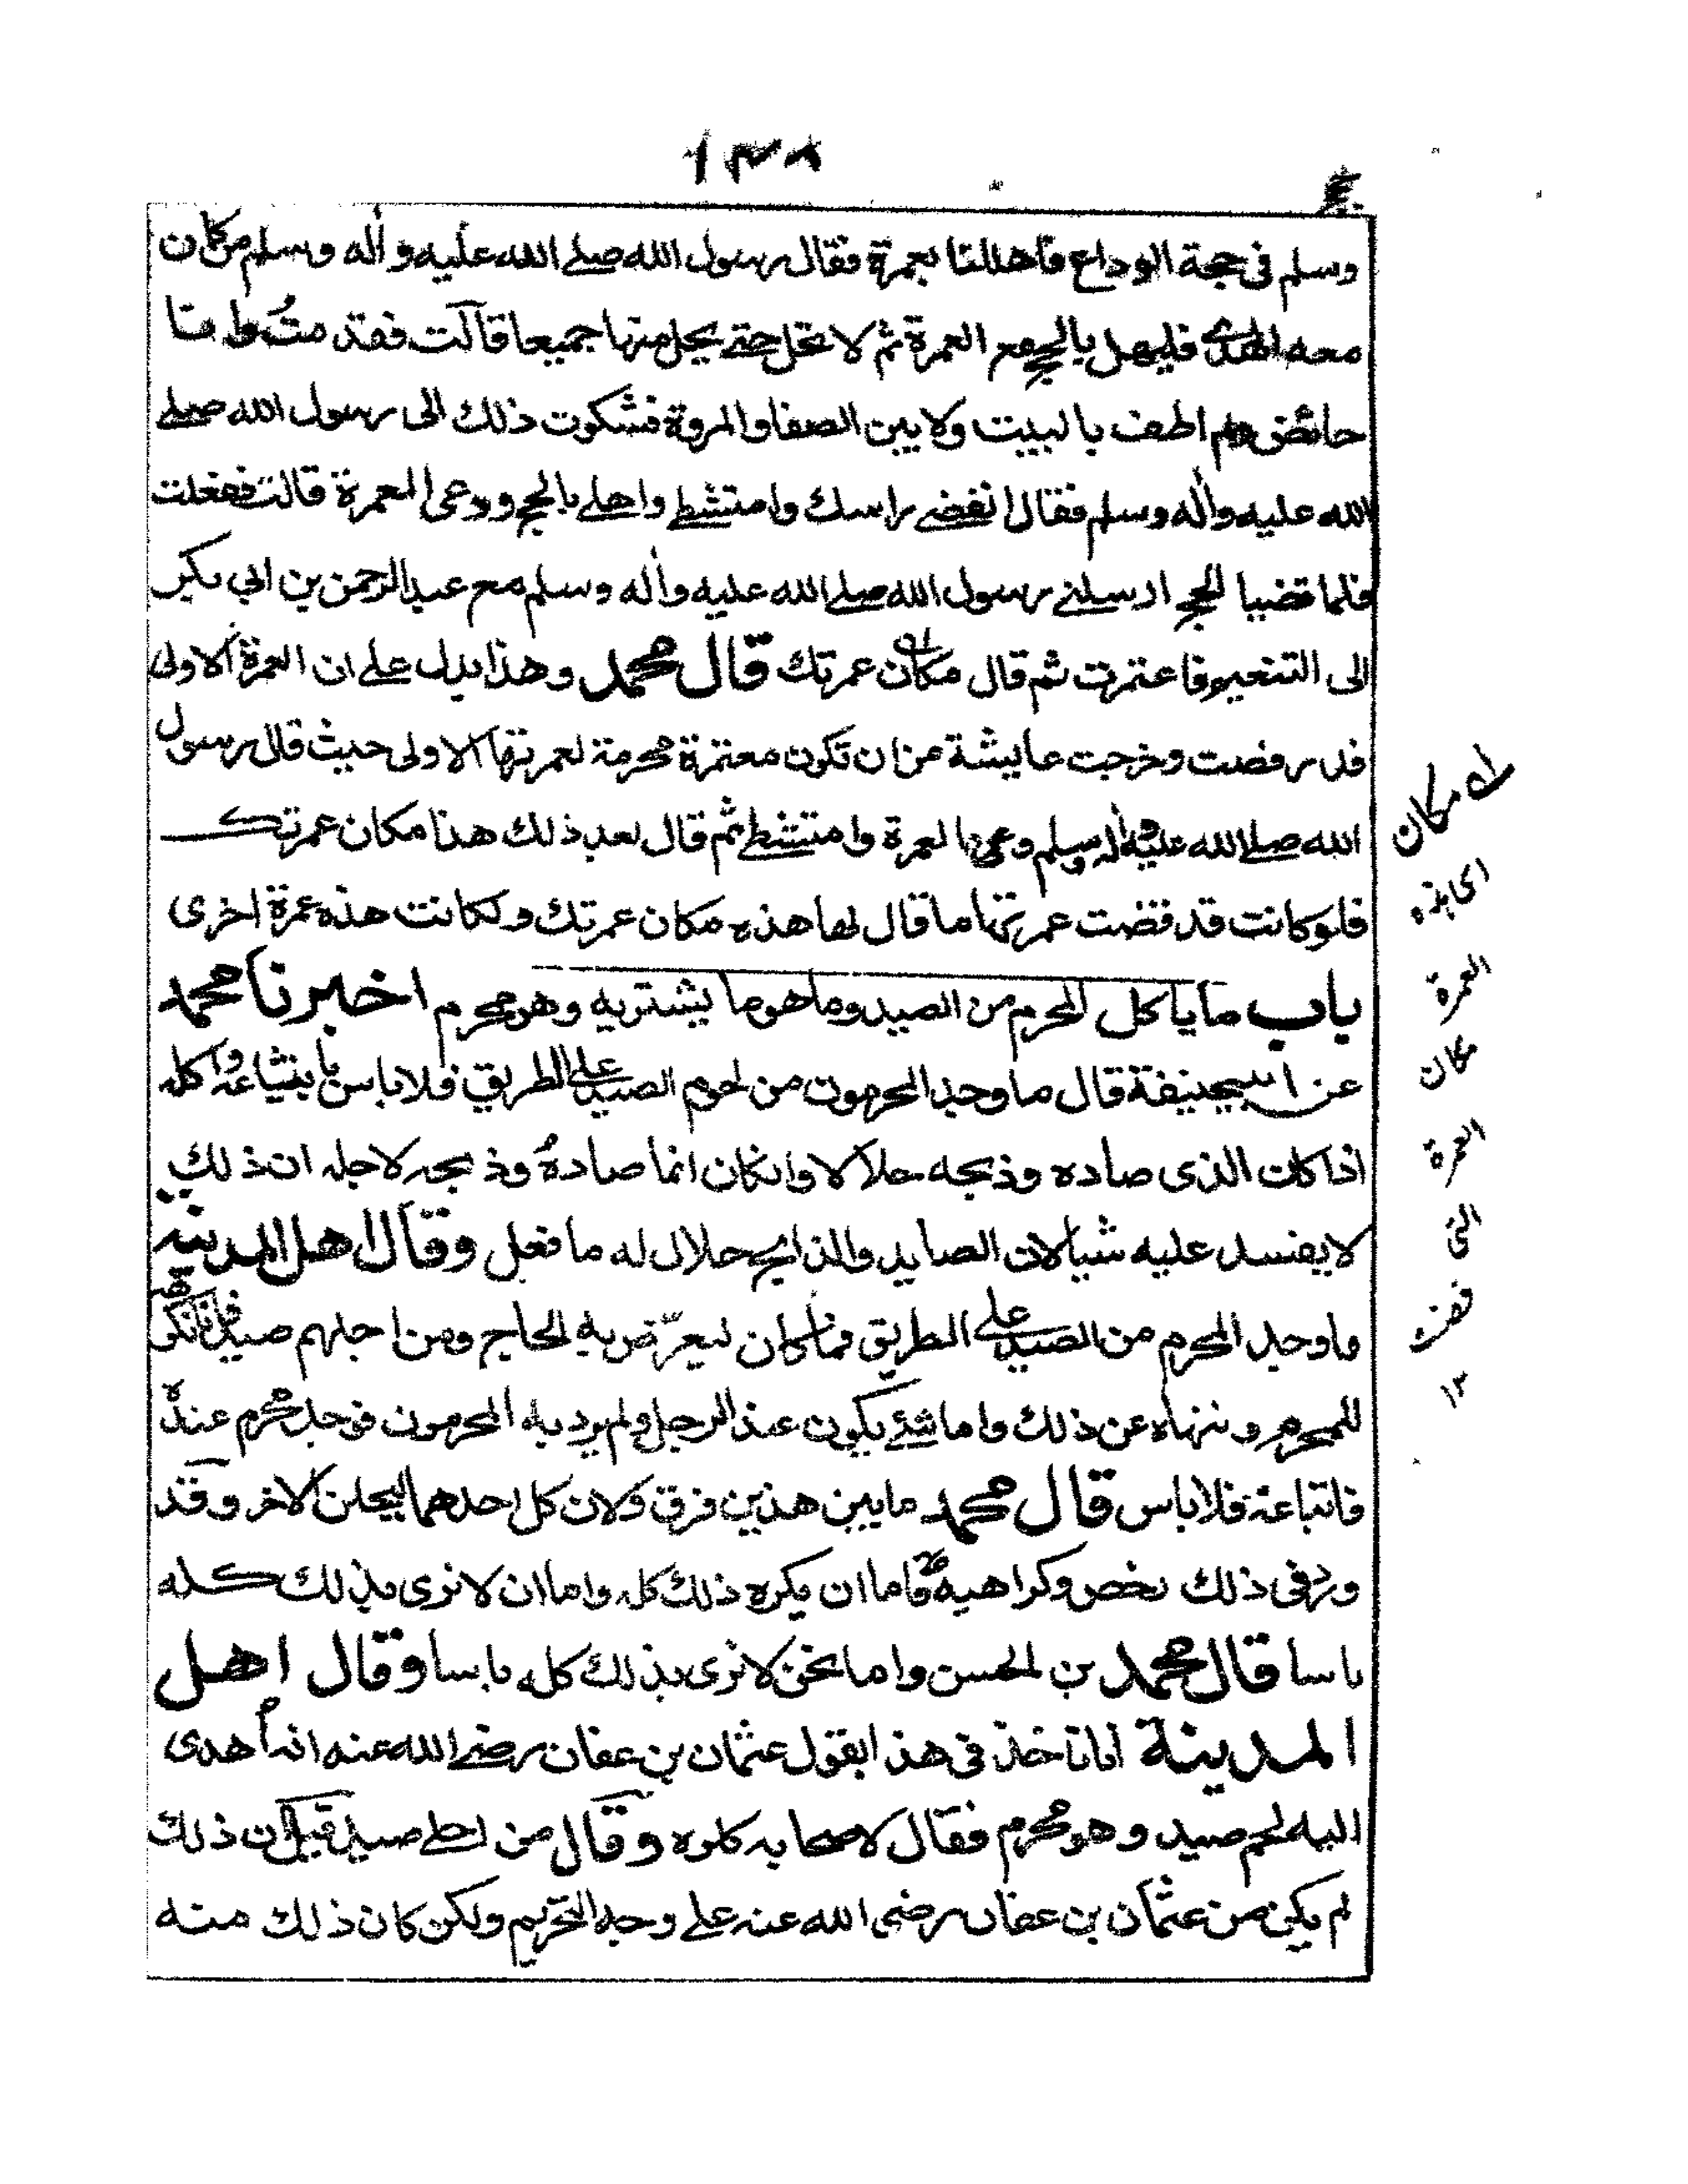 ١٣٨
وسلم فى حجة الوداع فاهللنا بعمرة فقال رسول الله صلى الله عليه واله وسلم من كان
معه الهدى فليهل بالحج مع العمرة ثم لا تحل حتى يحل منها جميعا قالت فقدمت وانا
حائض ولم اطف بالبيت ولا بين الصفا والمروة فشكوت ذلك الى رسول الله صلى
الله عليه واله وسلم فقال انقضى راسك وامتشطى واهلى بالحج ودعى العمرة قالت ففعلت
فلما قضينا الحج ارسلنى رسول الله صلى الله عليه واله وسلم مع عبد الرحمن بن ابى بكر
الى التنعيم فاعتمرت ثم قال مكان عمرتك قال محمد وهذا يدل على ان العمرة الاولى
قد رفضت وخرجت عايشة من ان تكون معتمرة محرمة لعمرتها الاولى حيث قال رسول
الله صلى الله عليه واله وسلم دعى العمرة وامتشطى ثم قال بعد ذلك هذا مكان عمرتك
فلو كانت قد قضت عمرتها ما قال لها هذه مكان عمرتك ولكانت هذه عمرة اخرى
باب ما ياكل المحرم من الصيد وما هو ما يشتريه وهو محرم اخبرنا محمد
عن ابى حنيفة قال ما وجد المحرمون من لحوم الصيد على الطريق فلا باس بابتياعه واكله
اذا كان الذى صاده وذبحه حلالا وان كان انما صاده وذبحه لاجله ان ذلك
لا يفسد عليه شيا لان الصايد والذابح حلال له ما فعل وقال اهل المدينة
ما وجد المحرم من الصيد على الطريق فما كان ليعرّض به الحاج ومن اجلهم صيد فانا نكرهه
للمحرم وننهاه عن ذلك واما شئ يكون عند الرجل ولم يرد به المحرمون فوجد محرم عنده
فابتاعه فلا باس قال محمد ما بين هذين فرق ولان كل احدهما ليحلن الاخر وقد
ورد فى ذلك رخص وكراهية فاما ان يكره ذلك كله واما ان لا نرى بذلك كله
باسا قال محمد بن الحسن واما نحن لا نرى بذلك كله باسا وقال اهل
المدينة انا ناخذ فى هذا بقول عثمان بن عفان رضى الله عنه انه اهدى
اليه لحم صيد وهو محرم فقال لاصحابه كلوه وقال من صيد قيل ان ذلك
لم يكن من عثمان بن عفان رضى الله عنه على وجه التحريم ولكن كان ذلك منه
مكان
اى هذه
العمرة
مكان
العمرة
التى
فضت
١٢